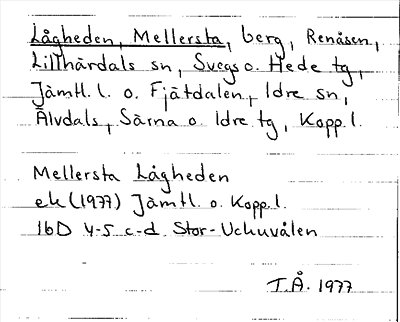 Lågheden, Mellersta, berg, Renåsen,
Lillhärdals sn, Svegs o. Hede tg,
Jämtl. l. o. Fjätdalen, Idre sn,
Älvdals, Särna o. Idre tg, Kopp. l.
Mellersta Lågheden
ek (1977) Jämtl. o. Kopp. l.
16D 4-5 c-d Stor-Uchuvålen
T.Å. 1977